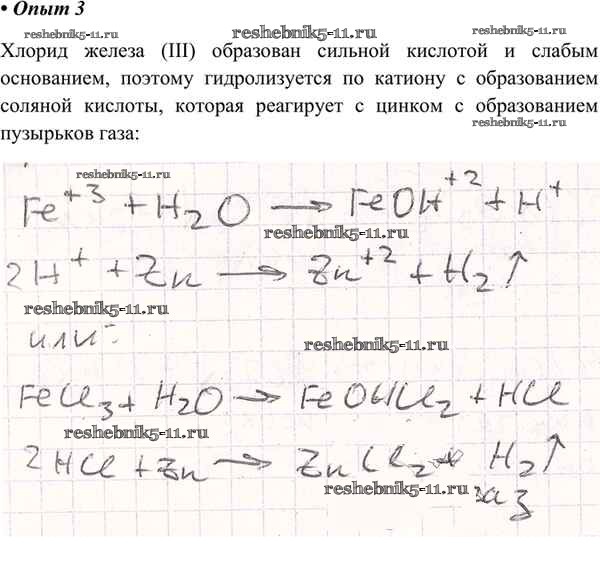 • Опыт 3
reshebnik5-11.ru
Хлорид железа (III) образован сильной кислотой и слабым
основанием, поэтому гидролизуется по катиону с образованием
соляной кислоты, которая реагирует с цинком с образованием
reshebnik5-11.ru
пузырьков газа:
reshebnik5-11.ru
Fe⁺³ + H₂O → FeOH⁺² + H⁺
reshebnik5-11.ru
2H⁺ + Zn → Zn⁺² + H₂↑
reshebnik5-11.ru
или:
reshebnik5-11.ru
FeCl₃ + H₂O → FeOHCl₂ + HCl
reshebnik5-11.ru
2HCl + Zn → ZnCl₂ + H₂↑
reshebnik5-11.ru
газ